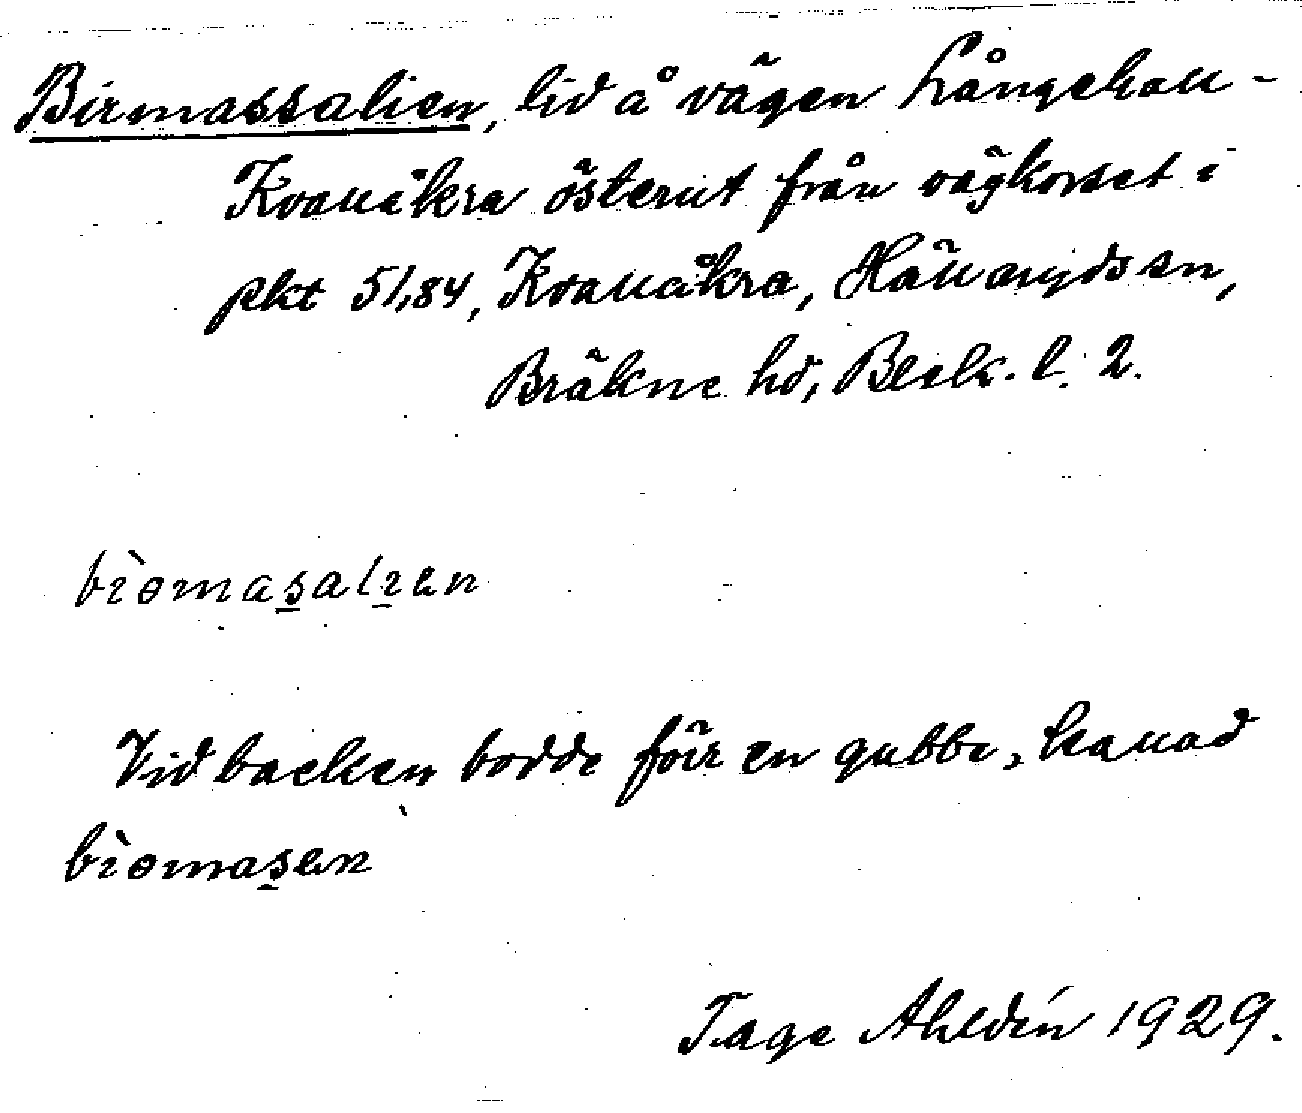 Birmassalien, lid å vägen Långehall -
Kvallåkra österut från vägkorset i
pkt 51,84, Kvallåkra, Hällaryds sn,
Bräkne hd, Blek. l. 2.
bìɵmasalien
Vid backen bodde förr en gubbe, kallad
bìɵmasen
Tage Ahldén 1929.